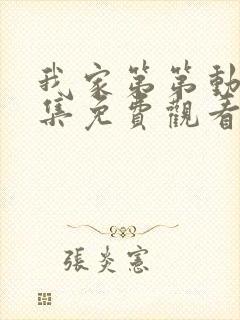 我家第第動
集免費觀看
張炎憲